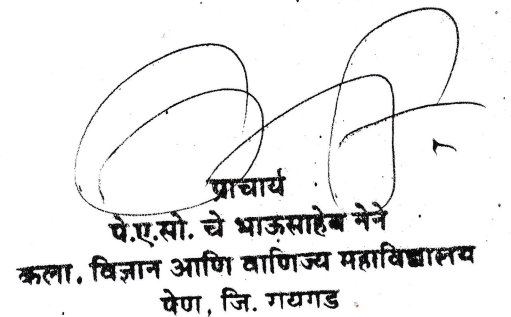 प्राचार्य
पे.ए.सो. चे भाऊसाहेब नेने
कला, विज्ञान आणि वाणिज्य महाविद्यालय
पेण, जि. रायगड